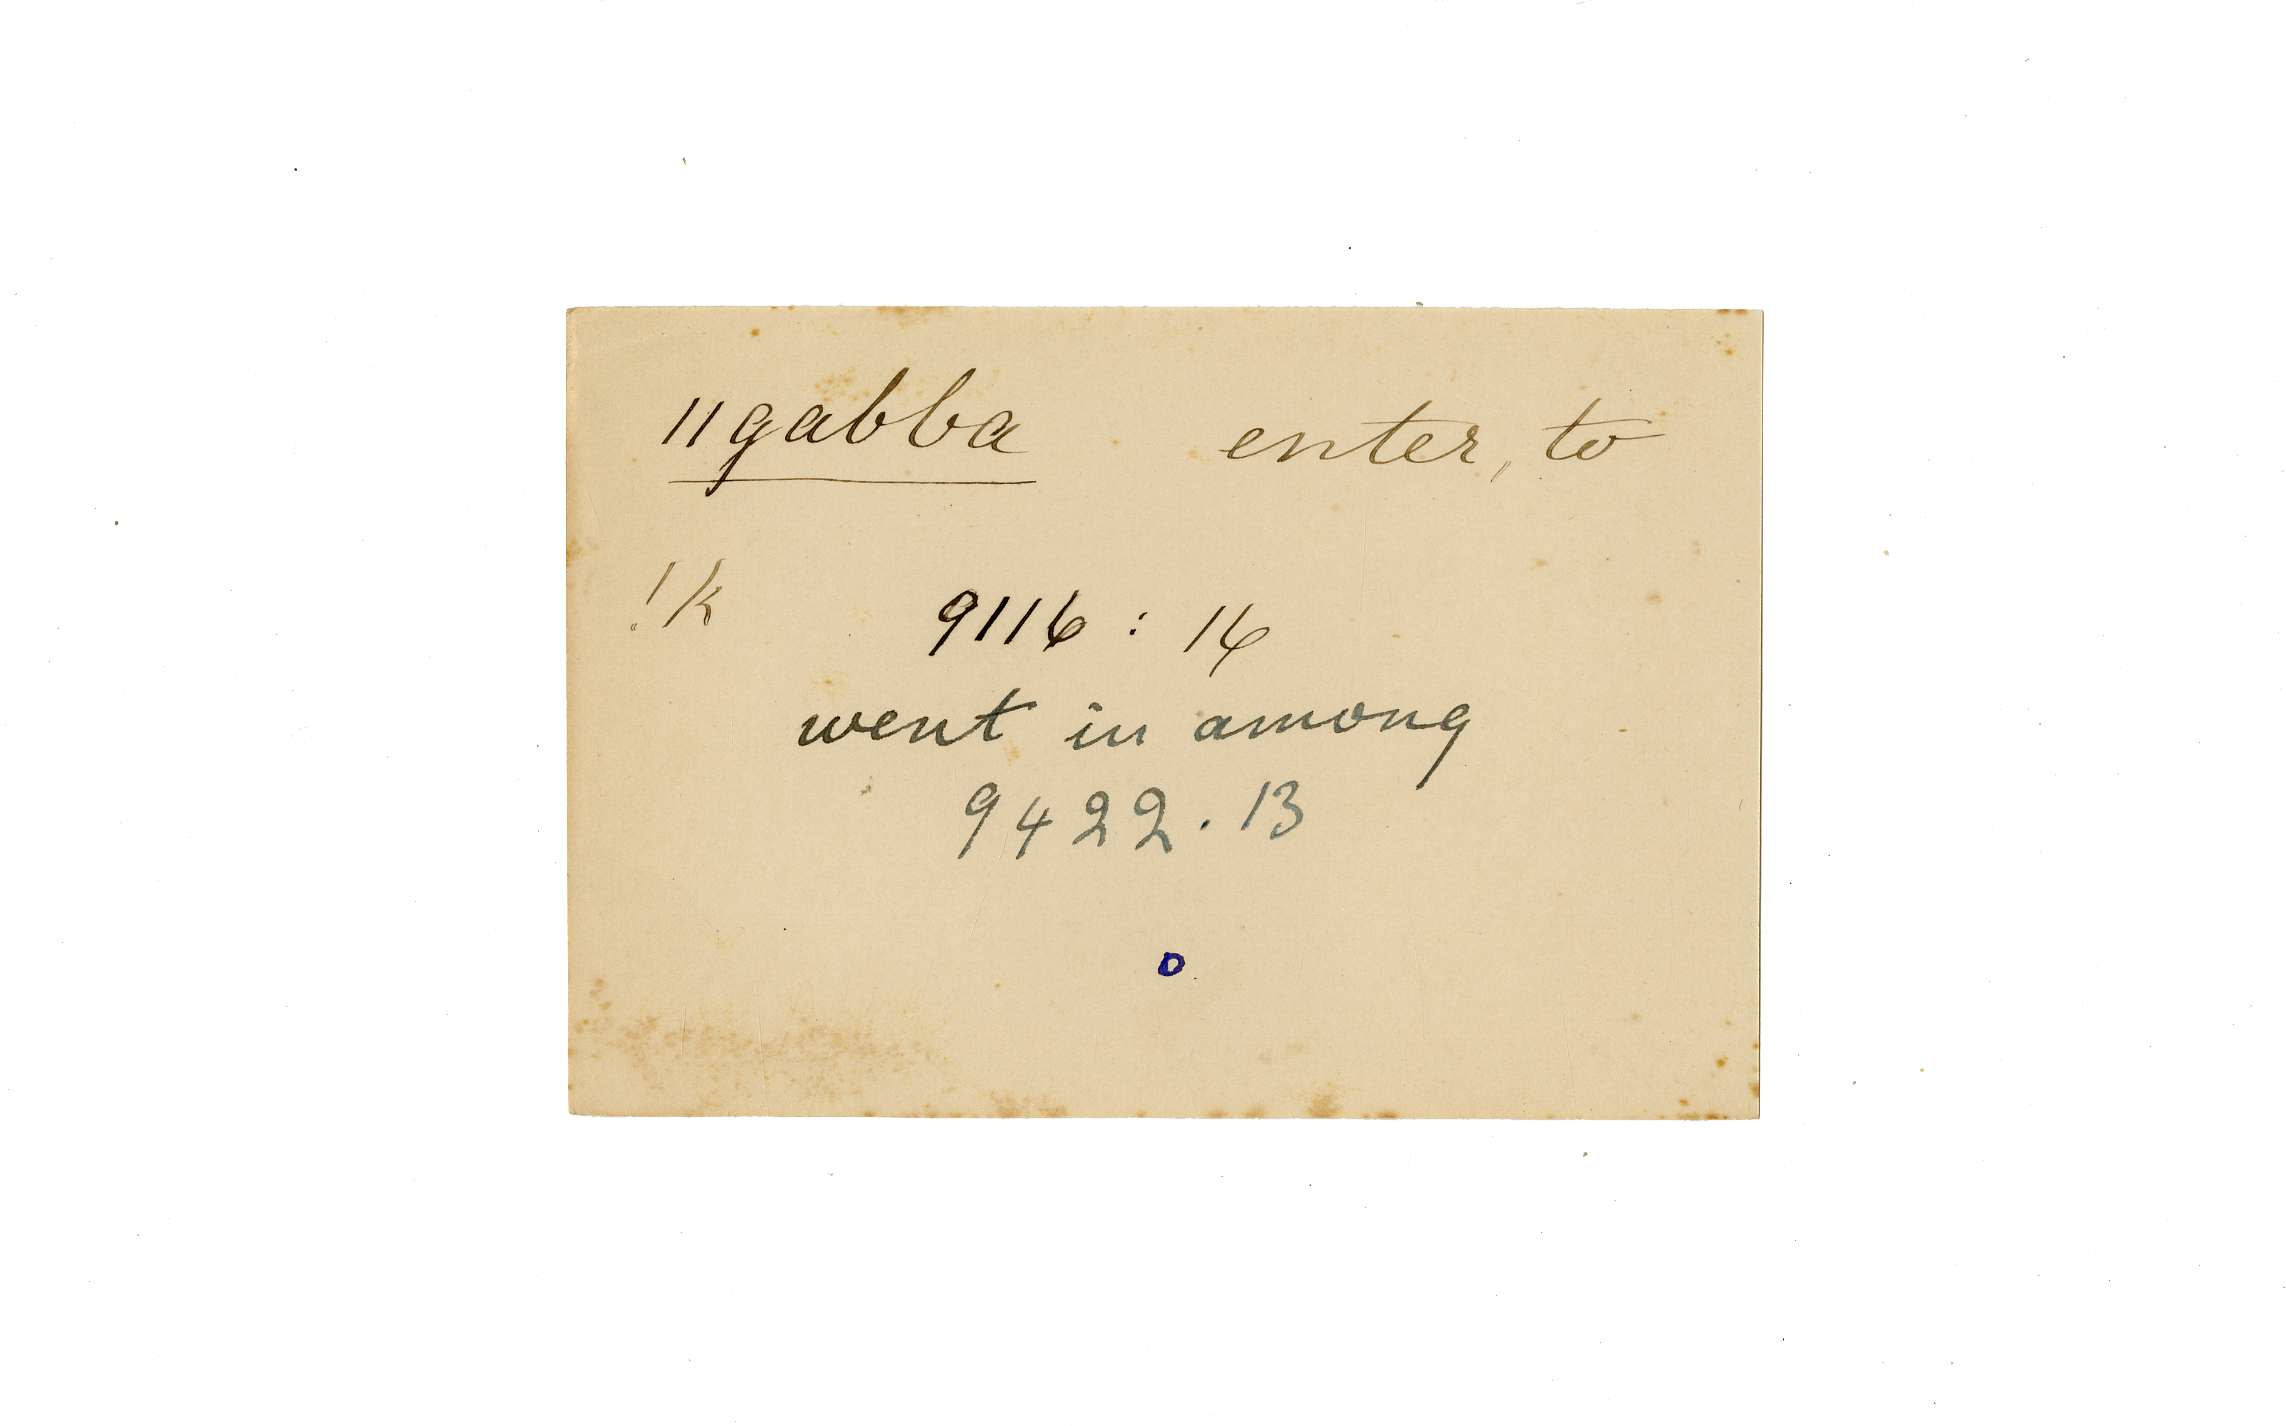 llgabba enter, to
!k 9116 : 16
went in among
9422. 13
o